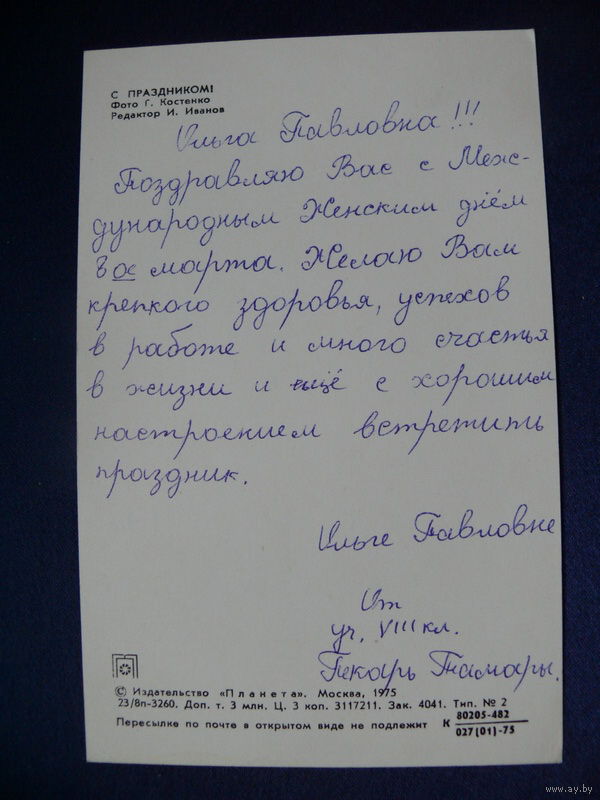 С ПРАЗДНИКОМ!
Фото Г. Костенко
Редактор И. Иванов
Ольга Павловна!!!
Поздравляю Вас с Меж-
дународным Женским днём
8ое марта. Желаю Вам
крепкого здоровья, успехов
в работе и много счастья
в жизни и ещё с хорошим
настроением встретить
праздник.
Ольге Павловне
От
уч. VIII кл.
Пекарь Тамары.
© Издательство «Планета». Москва, 1975
23/8п-3260. Доп. т. 3 млн. Ц. 3 коп. 3117211. Зак. 4041. Тип. № 2
Пересылке по почте в открытом виде не подлежит К 80205-482
027(01)-75
www.ay.by